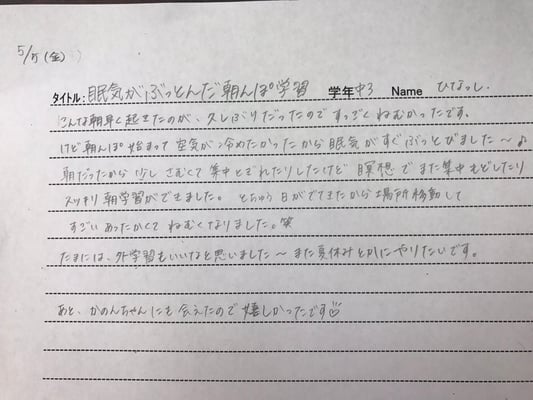 5/5 (金)
タイトル: 眠気がぶっとんだ朝んぽ学習 学年 中3 Name ひなっし.
こんな朝早く起きたのが、久しぶりだったのですっごくねむかったです。
けど朝んぽ始まって空気が冷めたかったから眠気がすぐぶっとびました〜♪
朝だったから少しさむくて集中とぎれたりしたけど 瞑想でまた集中もどしたり
スッキリ朝学習ができました。とちゅう日がでてきたから場所移動して
すごいあったかくてねむくなりました。笑
たまには、外学習もいいなと思いました〜また夏休みとかにやりたいです。
あと、かのんちゃんにも会えたので嬉しかったです